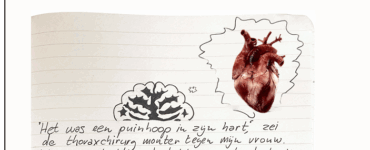 "Het was een puinhoop in zijn hart," zei
de thoraxchirurg monter tegen mijn vrouw.